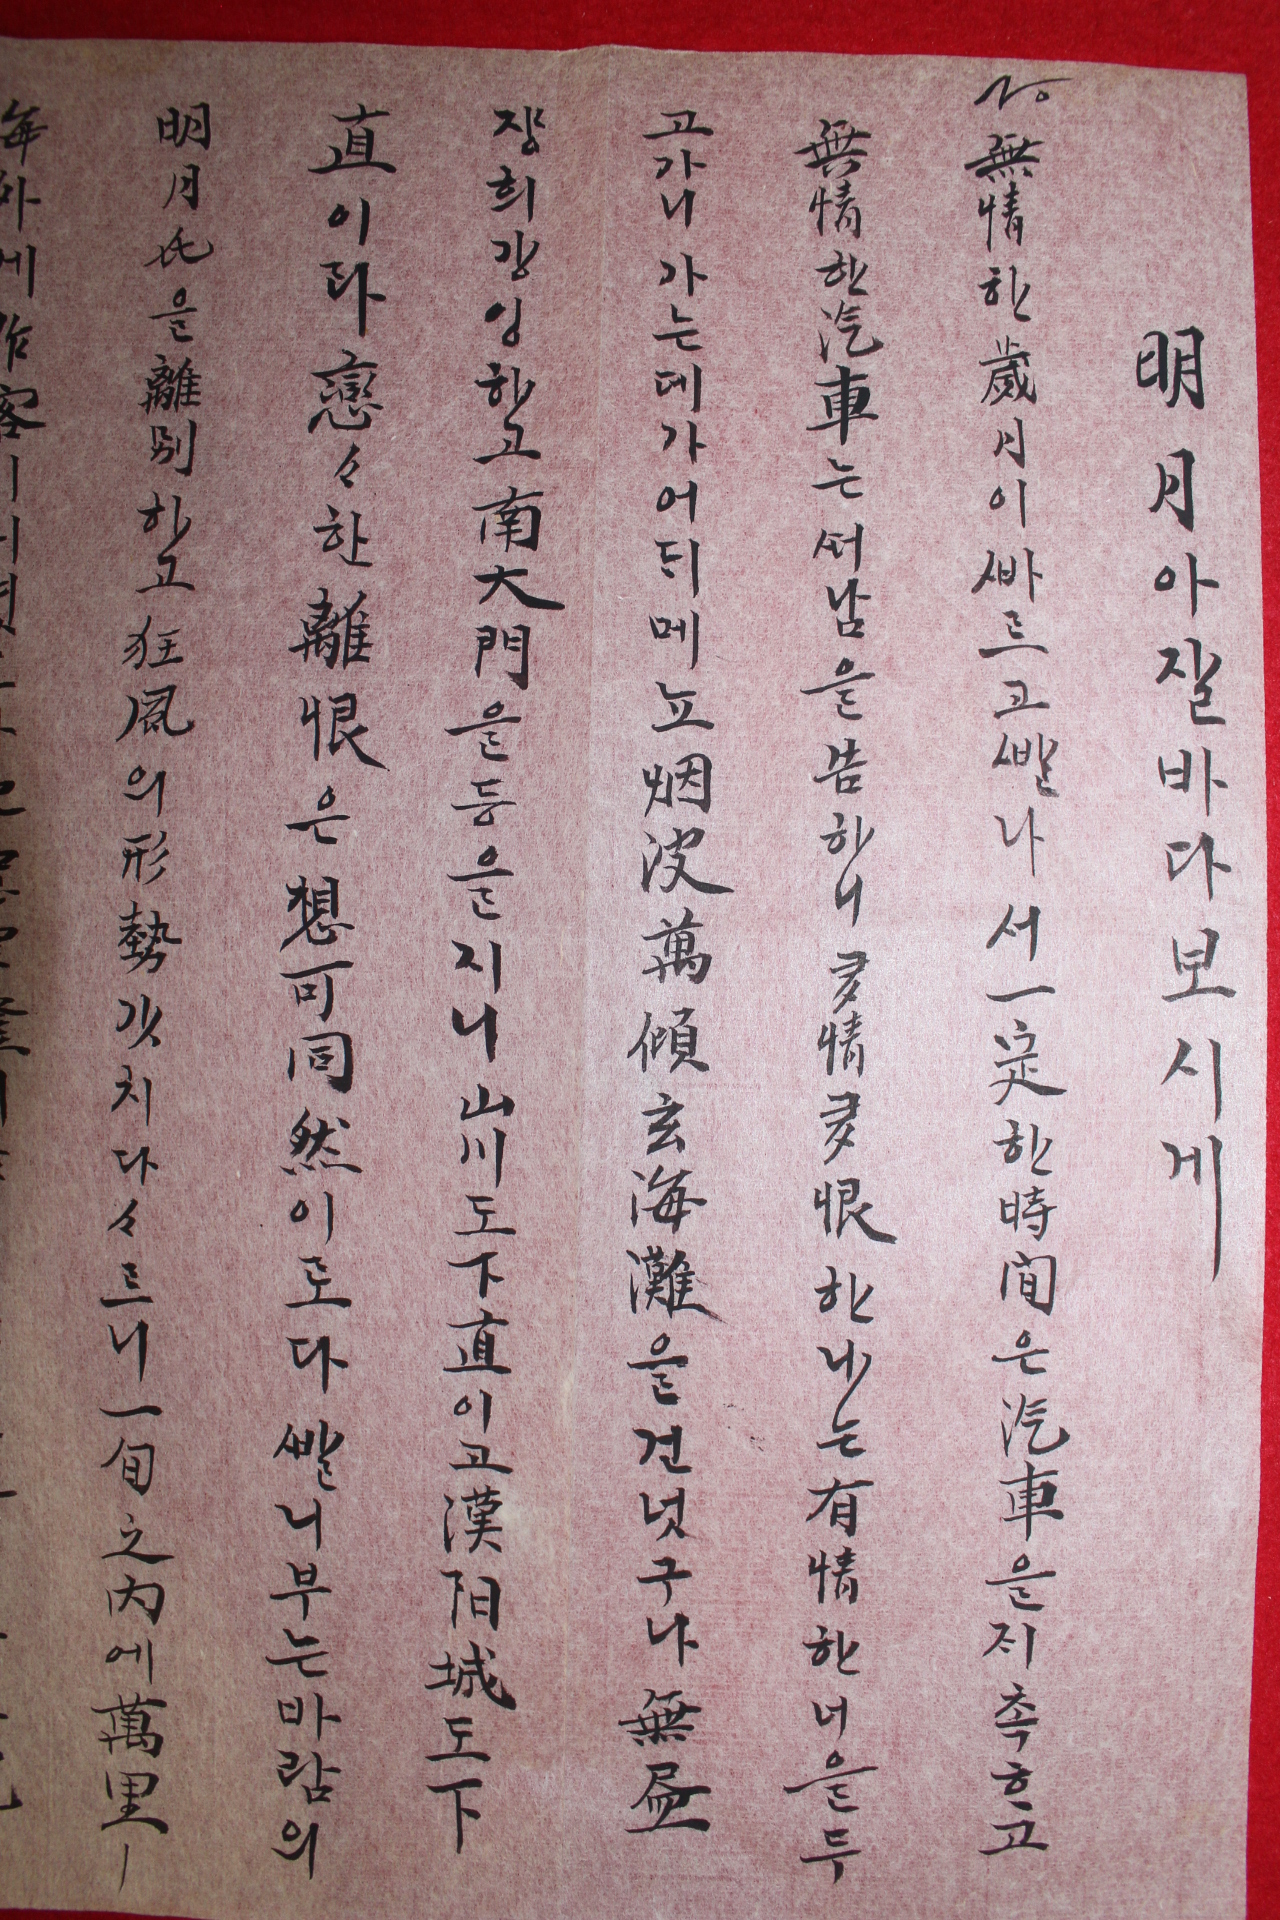 明月아잘바다보시게
無情한歲月이ᄲᅡ르고ᄲᅡᆯ나서一定한時間은汽車을지촉ᄒᆞ고
無情한汽車는서남을告하니多情多恨한나는有情한너을두
고가니가는데가어듸메뇨烟波萬傾玄海灘을건넛구나無窮
장희강잉하고南大門을등을지니山川도下直이고漢阳城도下
直이라戀々한離恨은想可同然이로다ᄲᅡᆯ니부는바람의
明月氏을離別하고狂風의形勢갓치다々르니一旬之內에萬里